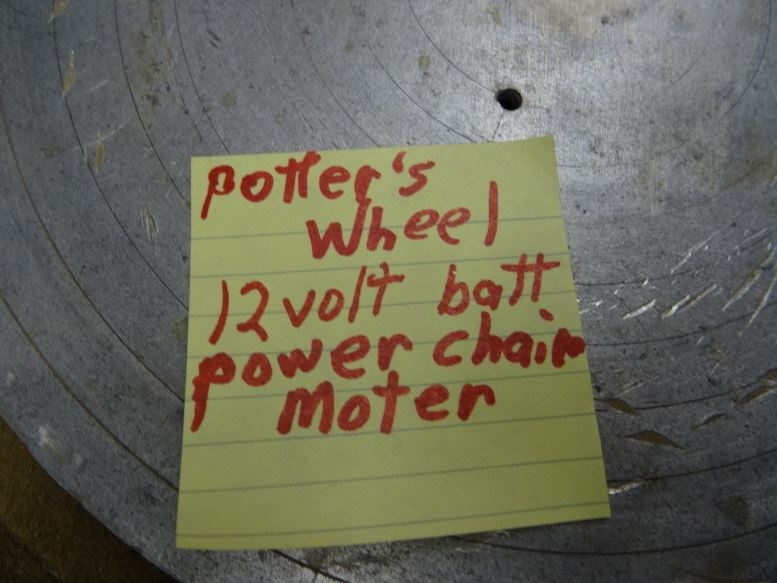 potter's
wheel
12 volt batt
power chair
moter